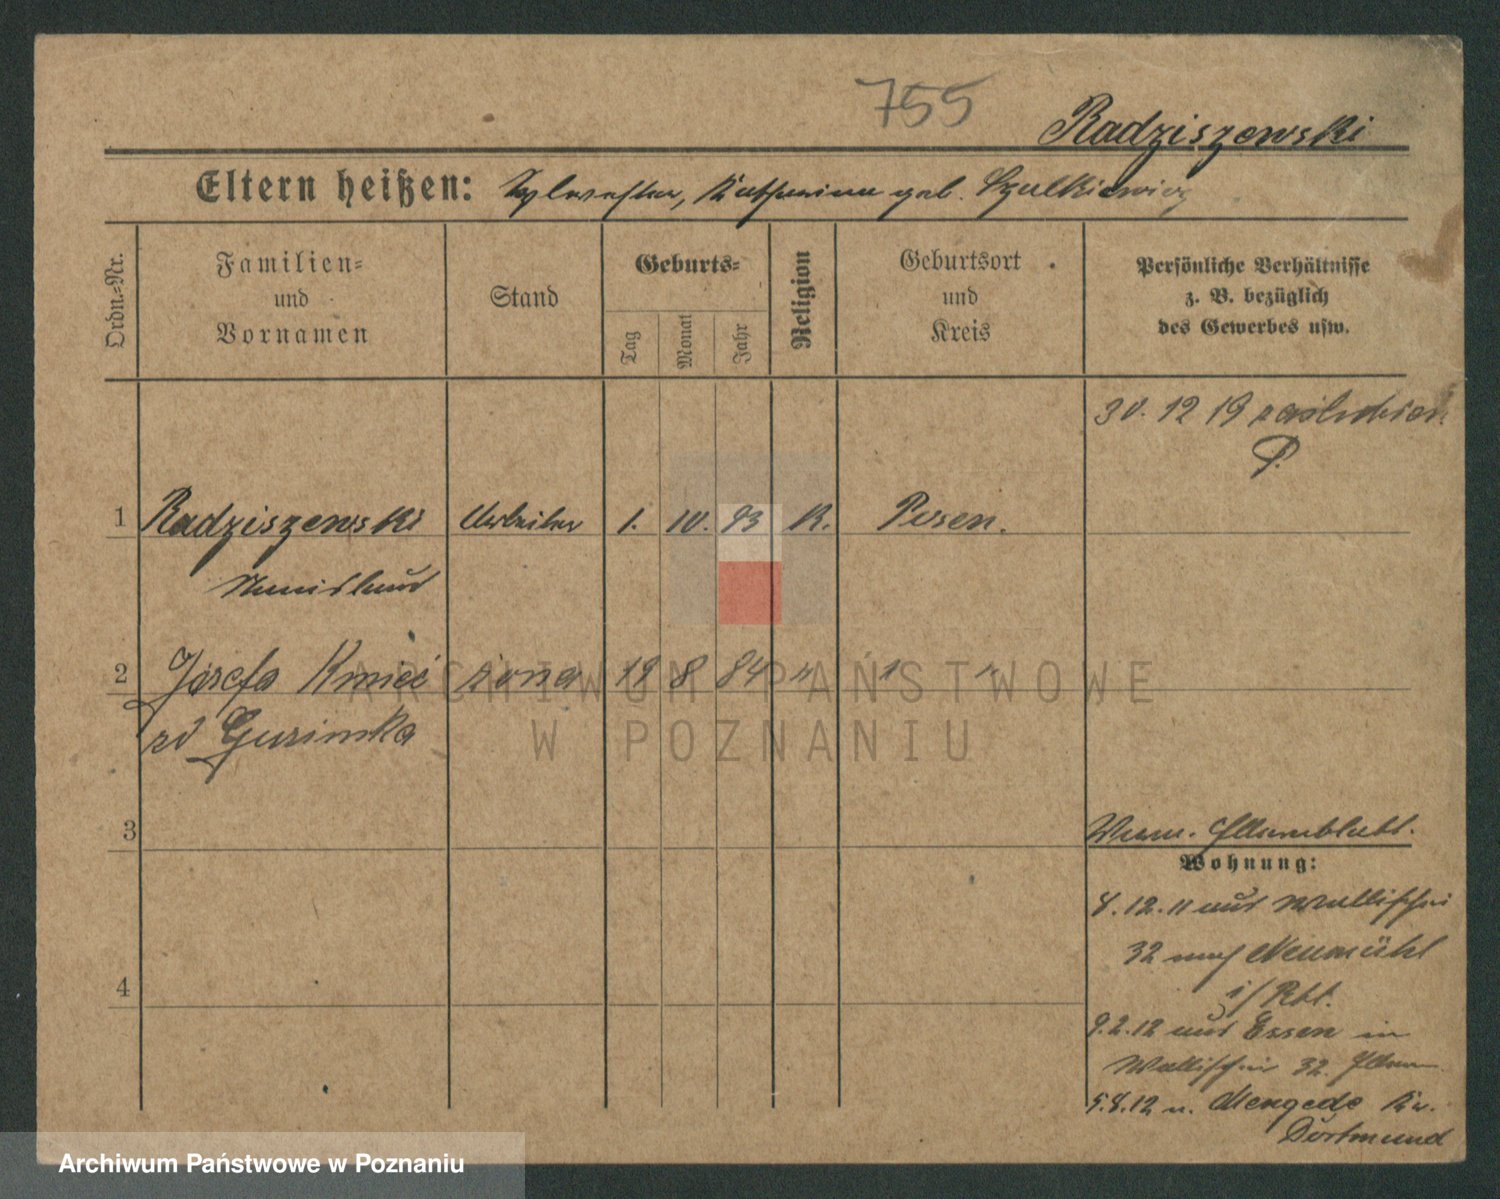 755
Radziszewski
Eltern heißen: Sylvester, Katharina geb. Szulkiewicz
Ordn.-Nr.
Familien-
und
Vornamen
Stand
Geburts-
Tag
Monat
Jahr
Religion
Geburtsort
und
Kreis
Persönliche Verhältnisse
z. B. bezüglich
des Gewerbes usw.
30. 12 19
P.
1 Radziszewski Arbeiter 1. 10. 93 K. Posen.
Stanislaus
2 Józefa Kmieć żona 19 8 84 " " "
zd
3
Wohnung:
8.12.11 aus Wallischei
32 nach Neumühl
4
9.2.12 aus Essen in
Wallischei 32. Eltern
5.8.12 n. Mengede Kr.
Dortmund
ARCHIWUM PAŃSTWOWE
W POZNANIU
Archiwum Państwowe w Poznaniu